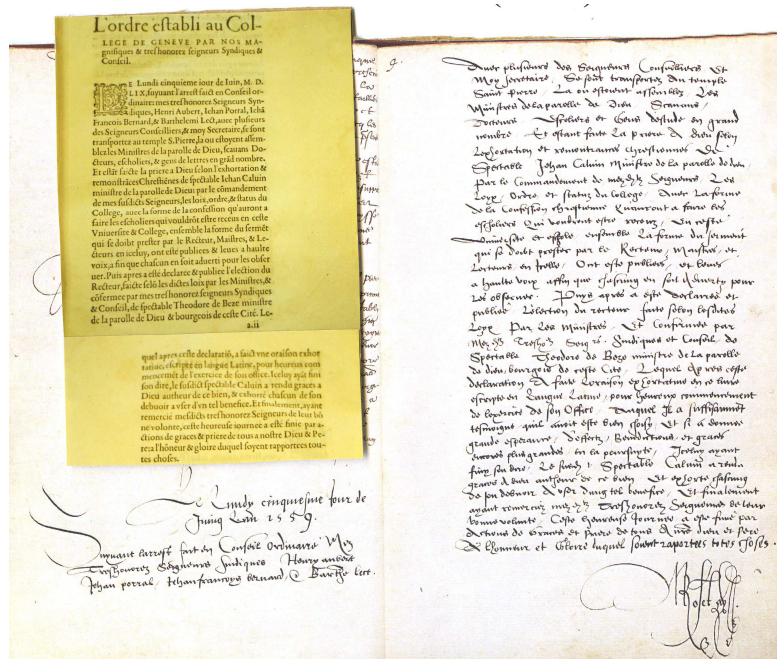 L'ordre establi au Col-
LEGE DE GENEVE PAR NOS MA-
gnifiques & treshonorez seigneurs Syndiques &
Conseil.
LE Lundi cinquiesme iour de Iuin, M. D.
LIX, suyuant l'arrest faict en Conseil or-
dinaire: mes treshonorez Seigneurs Syn-
diques, Henri Aubert, Iehan Porral, Iehã
François Bernard, & Barthelemi Lect, auec plusieurs
des Seigneurs Conseilliers, & moy Secretaire, se sont
transportez au temple S. Pierre, là ou estoyent assem-
blez les Ministres de la parole de Dieu, scauans Do-
cteurs, escholiers, & gens de lettres en grãd nombre.
Et estãt faicte la priere à Dieu selon l'exhortation &
remonstrãces Chrestiẽnes de spectable Iehan Caluin
ministre de la parole de Dieu: par le cõmandement
de mes susdicts Seigneurs, les loix, ordre, & status du
College, auec la forme de la confession qu'auront à
faire les escholiers qui voudrõt estre receus en ceste
Vniuersité & College, ensemble la forme du sermẽt
qui se doibt prester par le Recteur, Maistres, & Le-
cteurs en iceluy, ont esté publiees & leues à haulte
voix, a fin que chascun en soit aduerti pour les obser
uer. Puis apres a esté declaree & publiee l'election du
Recteur, faicte selõ les dictes loix par les Ministres, &
cõfermee par mes treshonorez seigneurs Syndiques
& Conseil, de spectable Theodore de Beze ministre
de la parole de Dieu & bourgeois de ceste Cité. Le-
a.ii
quel apres ceste declaratiõ, a faict vne oraison exhor
tatiue, escripte en langue Latine, pour heureux com
mencemẽt de l'exercice de son office. Iceluy ayãt fini
son dire, le susdict spectable Caluin a rendu graces à
Dieu autheur de ce bien, & exhorté chascun de son
debuoir à vser d'vn tel benefice. Et finalement, ayant
remercié mesdicts treshonorez Seigneurs de leur bõ
ne volonté, ceste heureuse iournee a esté finie par a-
ctions de graces & priere de tous à nostre Dieu & Pe-
re: à l'hõneur & gloire duquel soyent rapportees tou-
tes choses.
Le Lundy cinquiesme Jour de
Juing Lan 1559.
Suyuant larrest fait en Conseil Ordinaire Mes
Treshonorez Seigneurs Sindiques Henry aubert
Jehan porral, Jehan françoys bernard, & Barthe lect.
Auec plusieurs des Seigneurs Conseilliers Et
Moy secretaire, Se sont transportez Au temple
Saint pierre, La ou estoient assemblez Les
Ministres de la parolle de Dieu, Scauans,
Docteurs, Escholiers et Gens destude en grand
nombre. Et estant faite La priere A dieu selon
Lexhortation et remonstrances chrestiennes De
Spectable Jehan Caluin Ministre de la parolle de dieu.
Par le Commandement de Seigneurs, Les
Loys, Ordre et statuz du College, Auec La forme
de la Confession chrestienne Quauront a faire les
escholiers Qui voudront estre receuz, En ceste
Vniuersite et ensemble La forme du serment
qui se doibt prester par le Recteur, Maistres et
Lecteurs en Ont este publiees et leues
a haulte voix affin que chascung en soit Aduerty pour
les obseruer. Puys apres a este declairee et
publiee Lelection du recteur faite selon lesdites
Loys Par Les Ministres, Et Confirmee par
Mes Treshon Seigrs Sindiques et Conseil, de
Spectable Theodore de Beze ministre de la parolle
de dieu, bourgois de ceste Cité, Lequel Apres ceste
declaration A faite Loraison exhortatiue en ce liure
escripte en Langue Latine, pour heureux commencement
de lexercice de son Office, Duquel Il a suffisamment
tesmoigné quil auoit este bien choisy, Et si a donne
grande esperance, deffectz, Benedictions et graces
encores plus grandes en la poursuyte, Iceluy ayant
finy son dire, Le Spectable Caluin a rendu
graces A dieu autheur de ce bien Et exhorte chascung
de son debuoir A vser dung tel benefice, Et finalement
ayant remercié Treshonorez Seigneurs de leur
bonne volunté, Ceste heureuse Journee a este finie par
Actions de Graces et priere de tous A nre dieu et pere
A Lhonneur et Gloire duquel soient raportees totes choses.
Roset